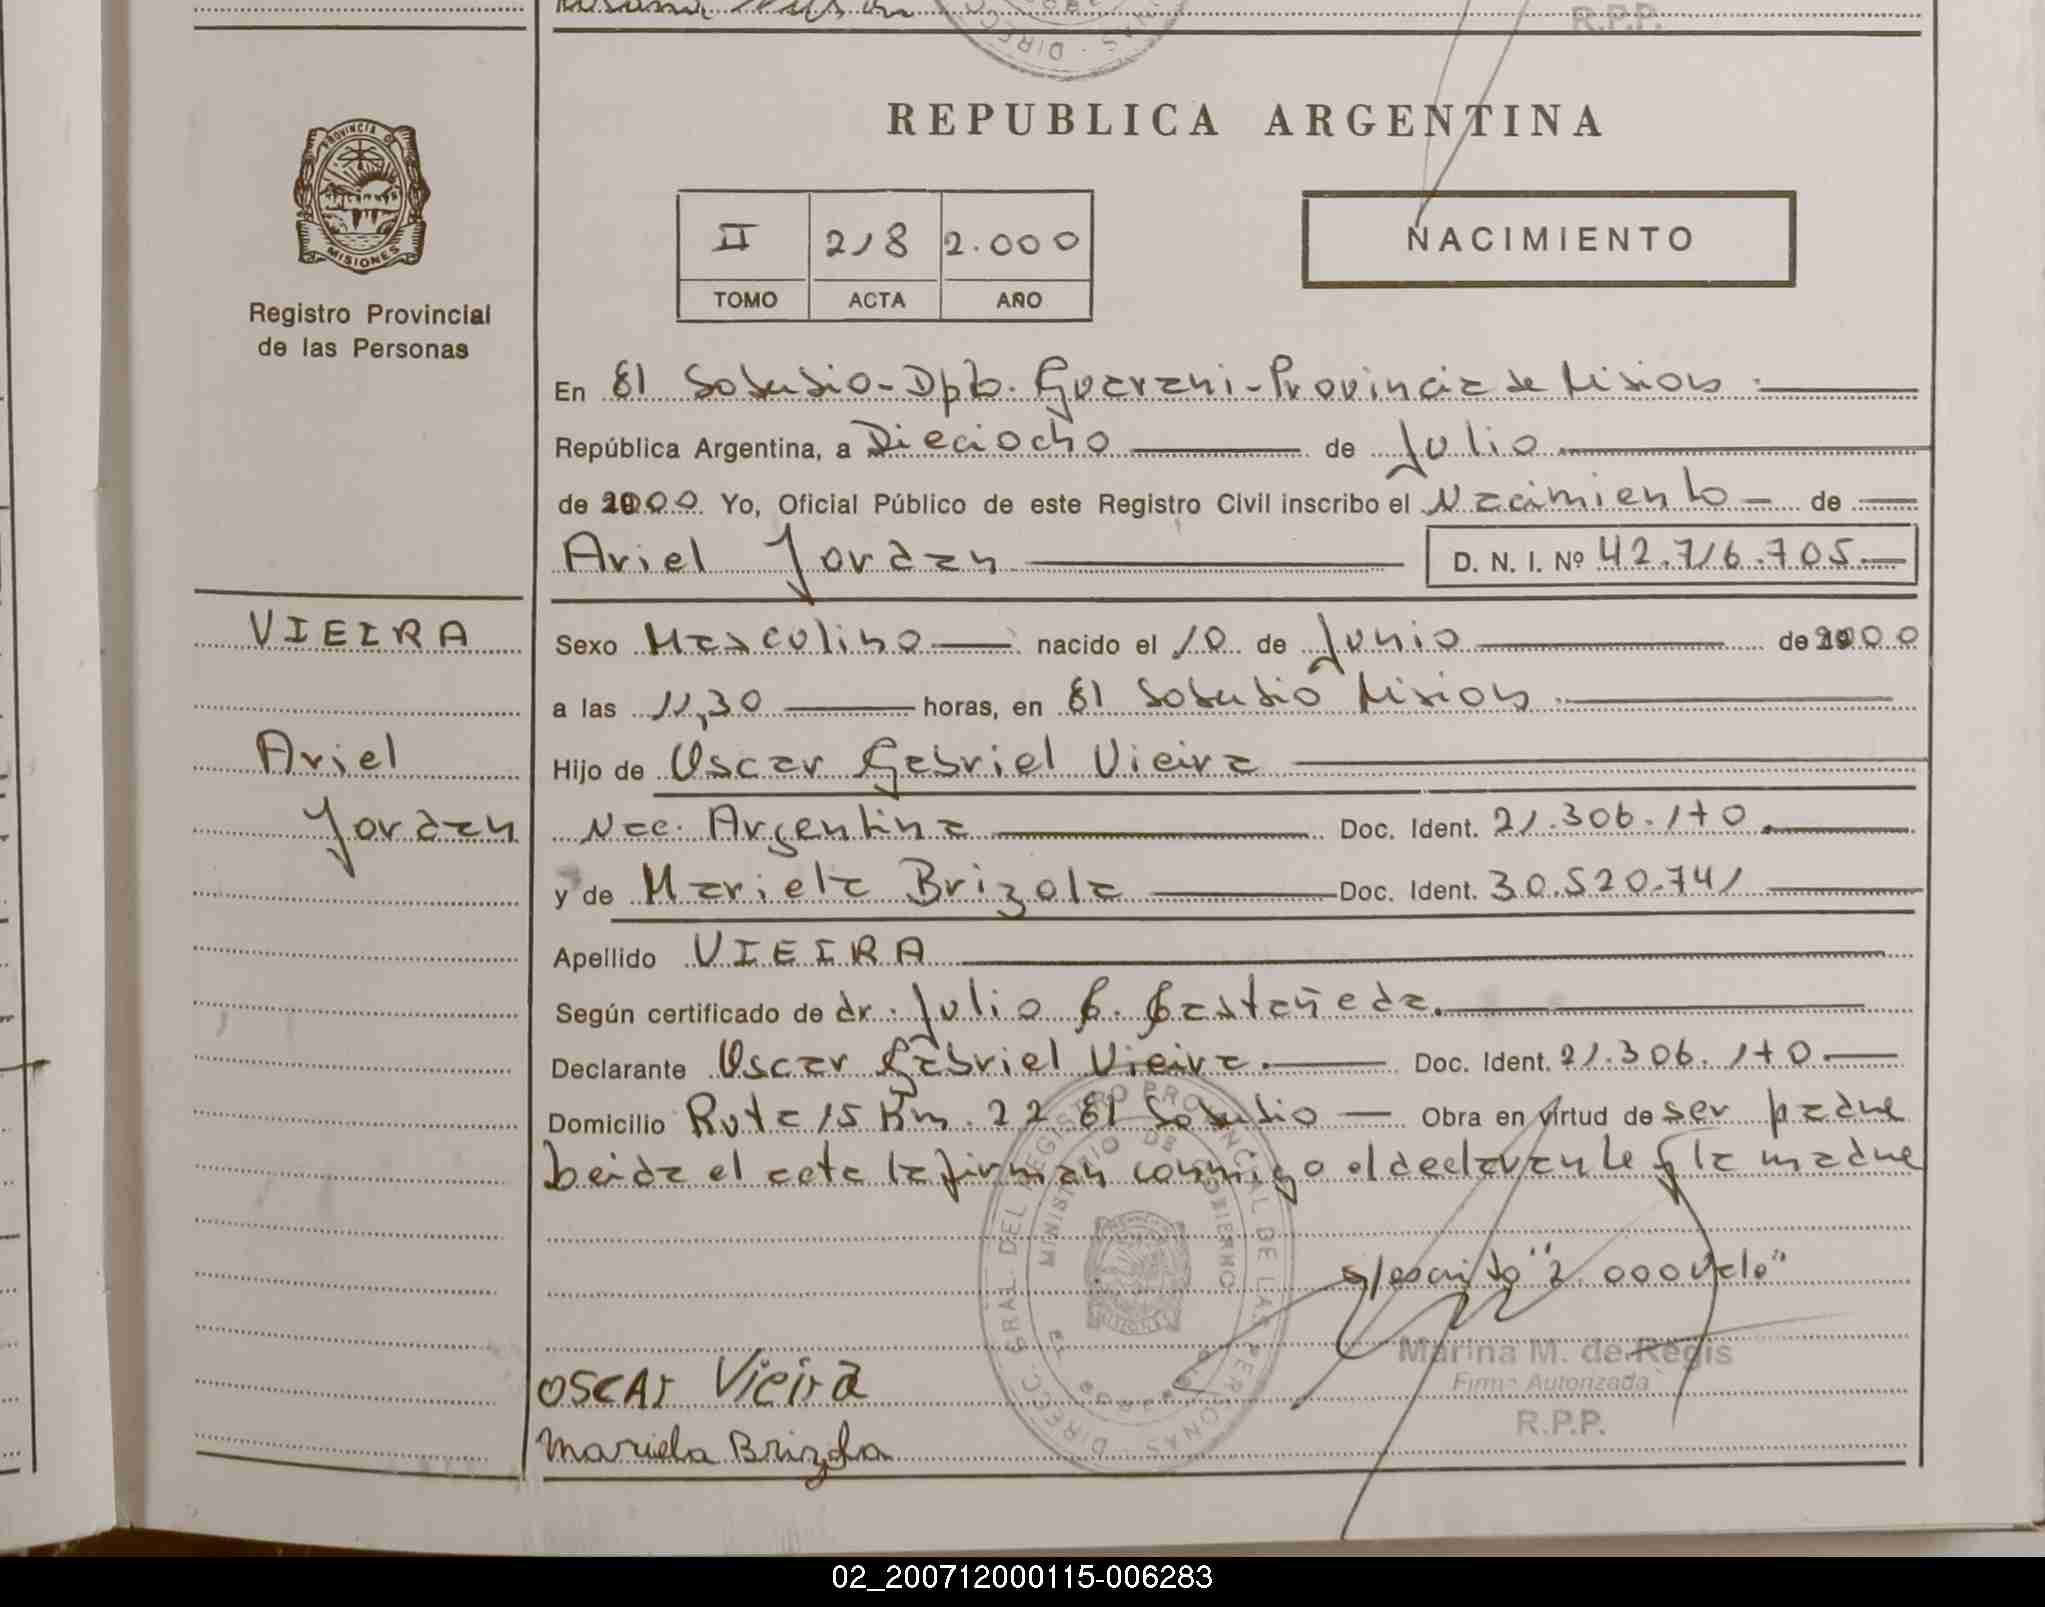 R.P.P.
PROVINCIA DE
MISIONES
Registro Provincial
de las Personas
REPUBLICA ARGENTINA
II 218 2.000
TOMO ACTA AÑO
NACIMIENTO
En El Soberbio - Dpto. Guarani - Provincia de Misiones.
República Argentina, a Dieciocho de Julio
de 2000 Yo, Oficial Público de este Registro Civil inscribo el Nacimiento de
Ariel Jordan D. N. I. Nº 42.716.705.
VIEIRA
Ariel
Jordan
Sexo Masculino nacido el 10 de Junio de 2000
a las 11,30 horas, en El Soberbio Misiones
Hijo de Oscar Gabriel Vieira
Nac. Argentina Doc. Ident. 21.306.170.
y de Mariela Brizola Doc. Ident. 30.520.741
Apellido VIEIRA
Según certificado de dr. Julio C. Castañeda.
Declarante Oscar Gabriel Vieira. Doc. Ident. 21.306.170.
Domicilio Ruta 15 Km. 22 El Soberbio Obra en virtud de ser padre
Leida el acta la firman conmigo el declarante y la madre
s/escrito "2.000 vale"
Marina M. de Regis
Firma Autorizada
R.P.P.
OSCAr Vieira
Mariela Brizola
DIRECC. GRAL. DEL REGISTRO PROVINCIAL DE LAS PERSONAS
MINISTERIO DE GOBIERNO
02_200712000115-006283